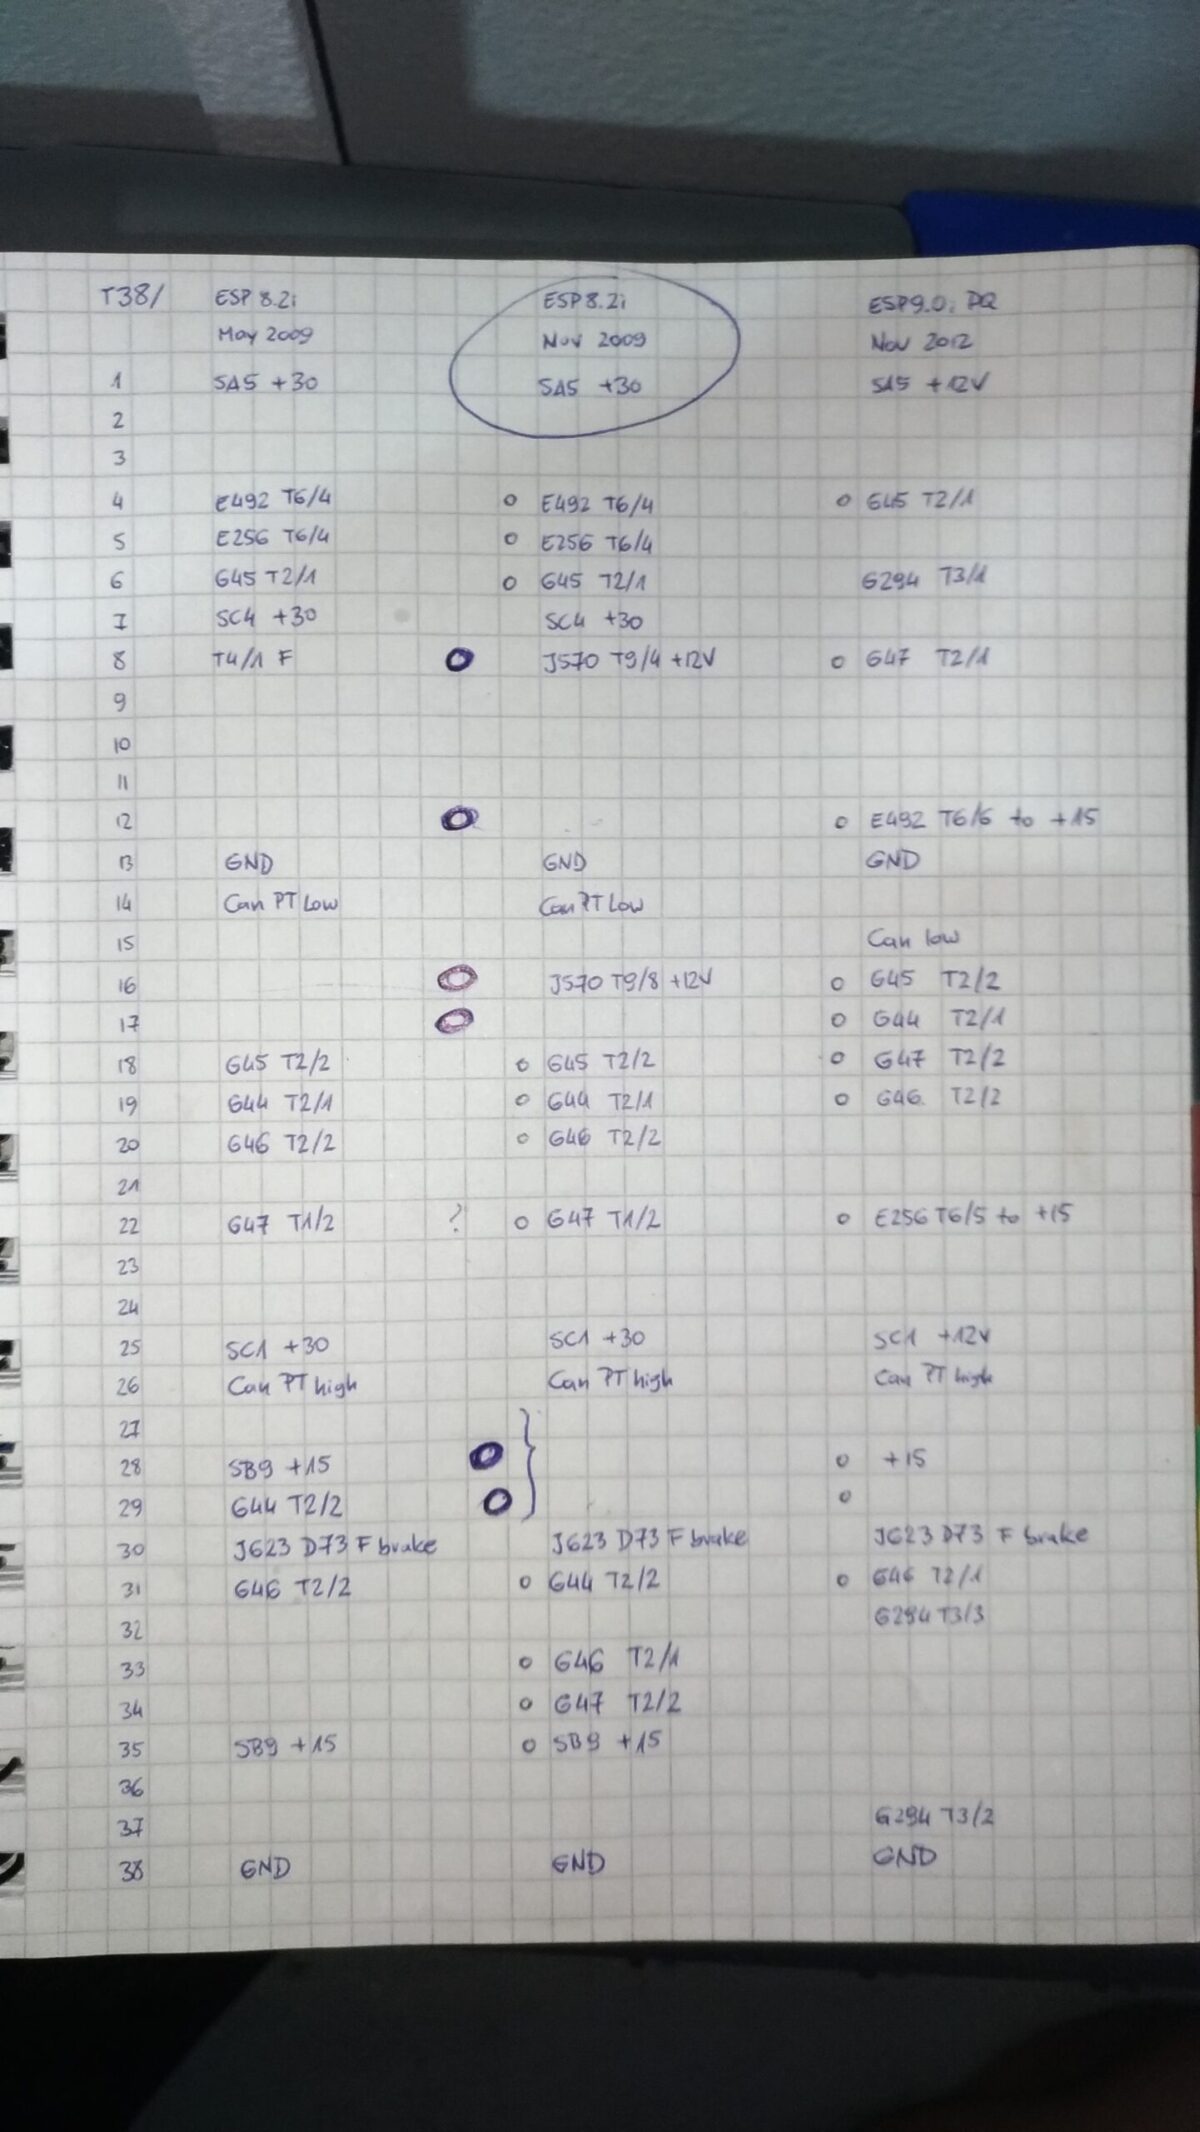 T38/ ESP 8.2i ESP8.2i ESP9.0i PQ
May 2009 Nov 2009 Nov 2012
1 SA5 +30 SA5 +30 SA5 +12V
2
3
4 E492 T6/4 o E492 T6/4 o G45 T2/1
5 E256 T6/4 o E256 T6/4
6 G45 T2/1 o G45 T2/1 G294 T3/1
7 SC4 +30 SC4 +30
8 T4/1 F O J570 T9/4 +12V o G47 T2/1
9
10
11
12 O o E492 T6/6 to +15
13 GND GND GND
14 Can PT Low Can PT Low
15 Can low
16 O J570 T9/8 +12V o G45 T2/2
17 O o G44 T2/1
18 G45 T2/2 o G45 T2/2 o G47 T2/2
19 G44 T2/1 o G44 T2/1 o G46 T2/2
20 G46 T2/2 o G46 T2/2
21
22 G47 T1/2 ? o G47 T1/2 o E256 T6/5 to +15
23
24
25 SC1 +30 SC1 +30 SC1 +12V
26 Can PT high Can PT high Can PT high
27 }
28 SB9 +15 O o +15
29 G44 T2/2 O o
30 J623 D73 F brake J623 D73 F brake J623 D73 F brake
31 G46 T2/2 o G44 T2/2 o G46 T2/1
32 G294 T3/3
33 o G46 T2/1
34 o G47 T2/2
35 SB9 +15 o SB9 +15
36
37 G294 T3/2
38 GND GND GND